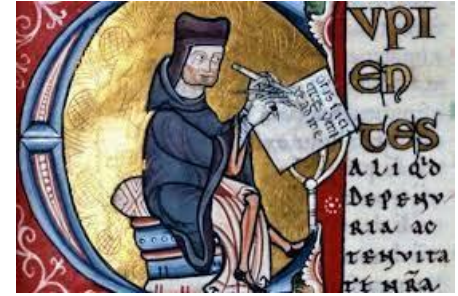 CVPI
EN
TES
ALIQ'D
DEPENV
RIA AC
TENVITA
TE NRA